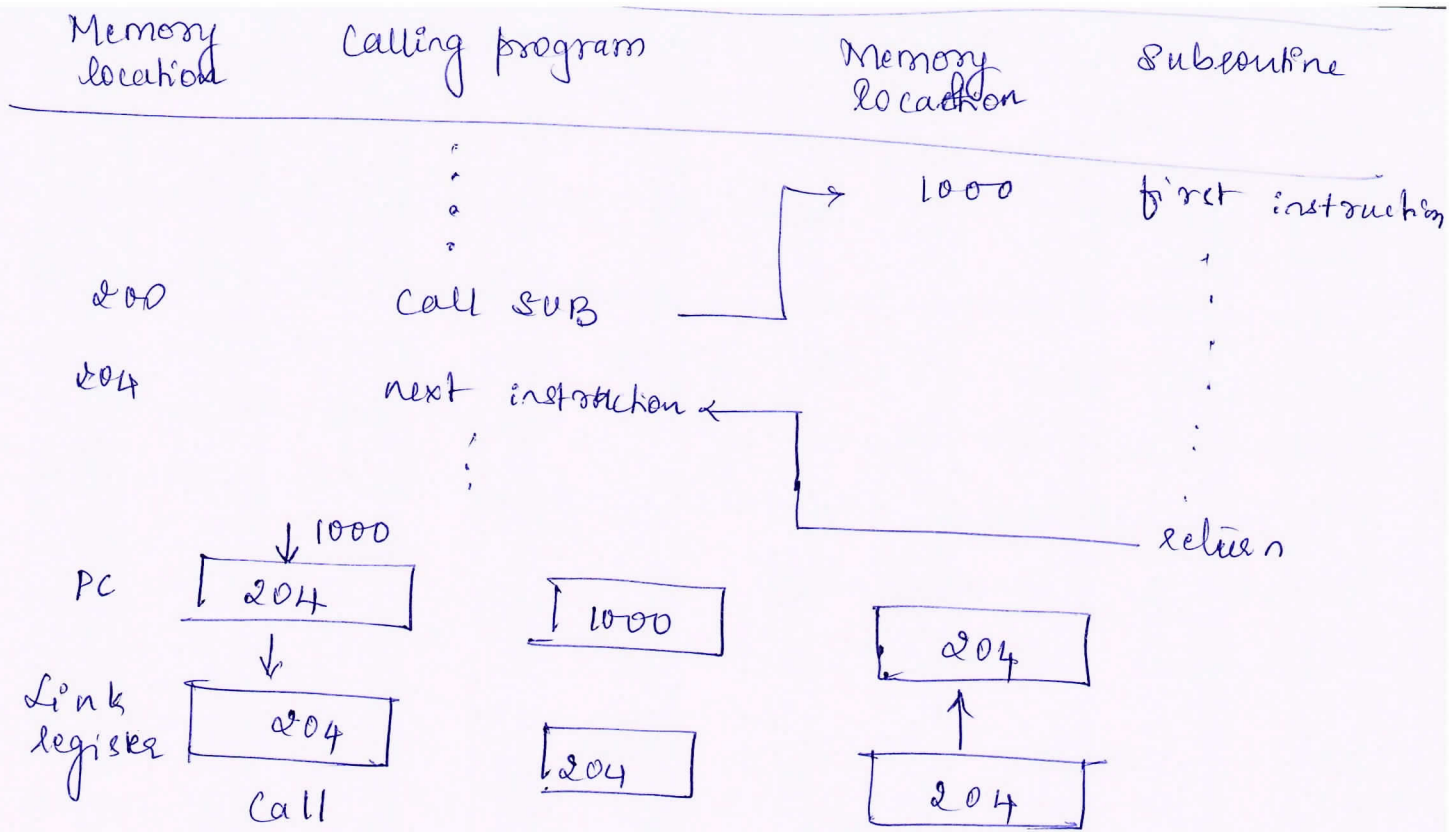 Memory location
Calling program
Memory location
Subroutine
1000 first instruction
200 Call SUB
204 next instruction
return
1000
PC 204 1000 204
Link register 204 204 204
Call